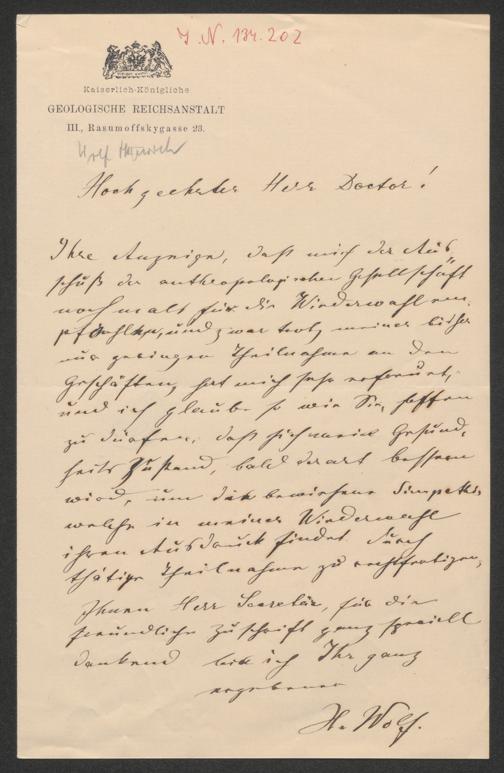 J. N. 134.202
Kaiserlich-Königliche
GEOLOGISCHE REICHSANSTALT
III., Rasumoffskygasse 23.
Wolf Heinrich
Hochgeehrter Herr Doctor!
Ihre Anzeige, daß mich der Aus
schuß der anthropologischen Gesellschaft
nochmals für die Wiederwahl em,
pfohlen, und zwar trotz meiner bisher
nur geringen Theilnahme an den
Geschäften, hat mich sehr erfreut,
und ich glaube so wie Sie, hoffen
zu dürfen, daß sich mein Gesund,
heits Zustand, bald derart bessern
wird, um die bewiesene Simpathie
welche in meiner Wiederwahl
ihren Ausdruck findet durch
thätige Theilnahme zu rechtfertigen,
Ihnen Herr Secretär, für die
freundliche Zuschrift ganz speciell
dankend bin ich Ihr ganz
ergebener
H. Wolf.